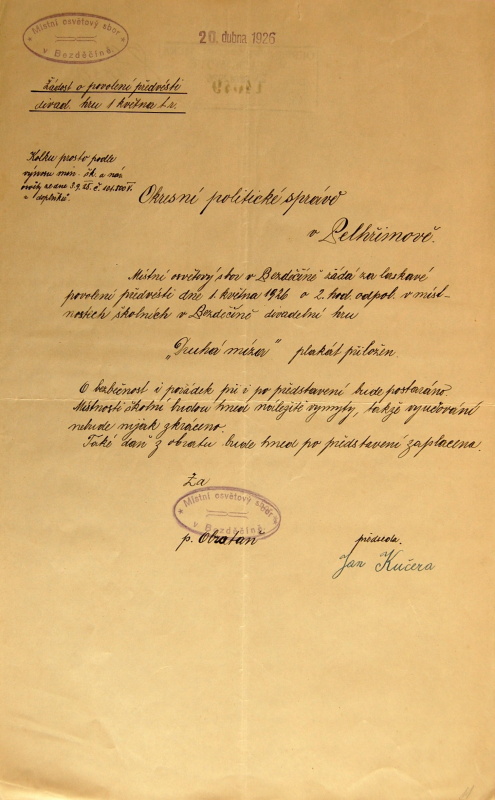 * Místní osvětový sbor *
v Bezděčíně
20. dubna 1926
Žádost o povolení předvésti
divad. hru 1 května t. r.
Kolku prosto podle
výnosu min. šk. a nár.
osvěty ze dne 3. 9. 25. č. 101.
a doplňků
Okresní politické správě
v Pelhřimově.
Místní osvětový sbor v Bezděčíně žádá za laskavé
povolení předvésti dne 1 května 1926 o 2. hod. odpol. v míst-
nostech školních v Bezděčíně divadelní hru
„Druhá míza" plakát přiložen.
O bezbečnost i pořádek při i po představení bude postaráno.
Místnosti školní budou hned náležitě vymyty, takže vyučování
nebude nijak zkráceno.
Také daň z obratu bude hned po představení zaplacena.
Za
* Místní osvětový sbor *
v Bezděčíně
p. Obrataň
předseda.
Jan Kučera